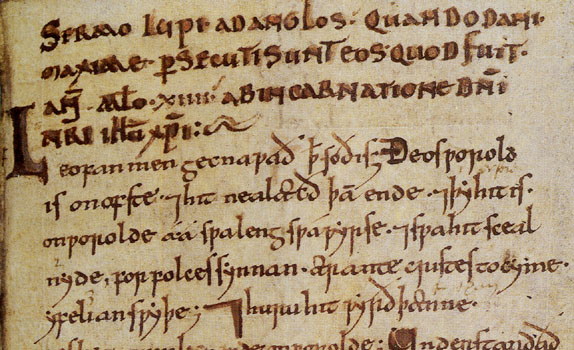 SERMO LUPI AD ANGLOS· QUANDO DANI·
MAXIME· ꝑSECUTI SUNT EOS· QUOD FUIT·
AÑ· MILL̄O· XIIII· AB INCARNATIONE DN̄I
NR̄I IH̄U XPĪ·
Leofan men gecnaƿað ꝥ soð is; Ðeos ƿorold
is on ofste· ⁊ hit nealæcð þā ende· ⁊ þy hit is·
on ƿorolde aa sƿa leng sƿa ƿyrse· ⁊ sƿa hit sceal
nyde, for folces synnan· ær antecristes tocyme·
yfelian sƿyþe; ⁊ huru hit ƿyrð þænne
on ƿorolde· Understandað